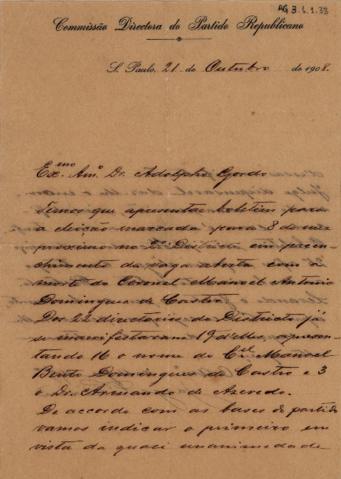 AG 3.6.1.38
Commissão Directora do Partido Republicano
S. Paulo, 21 de Outubro de 1908.
Exmo Amo Dr. Adolpho Gordo
Temos que apresentar boletim para
a eleição marcada para 8 de mez
proximo no Districto em preen-
chimento da vaga aberta com a
morte do Coronel Manoel Antonio
Domingues de Castro.
Dos 22 directorios do Districto já
se manifestaram 19 d'elles, apresen-
tando 16 o nome do Cel Manoel
Bento Domingues de Castro e 3
o Dr. Armando de Azevedo.
De accordo com as bases do partido
vamos indicar o primeiro em
vista da quasi unanimidade